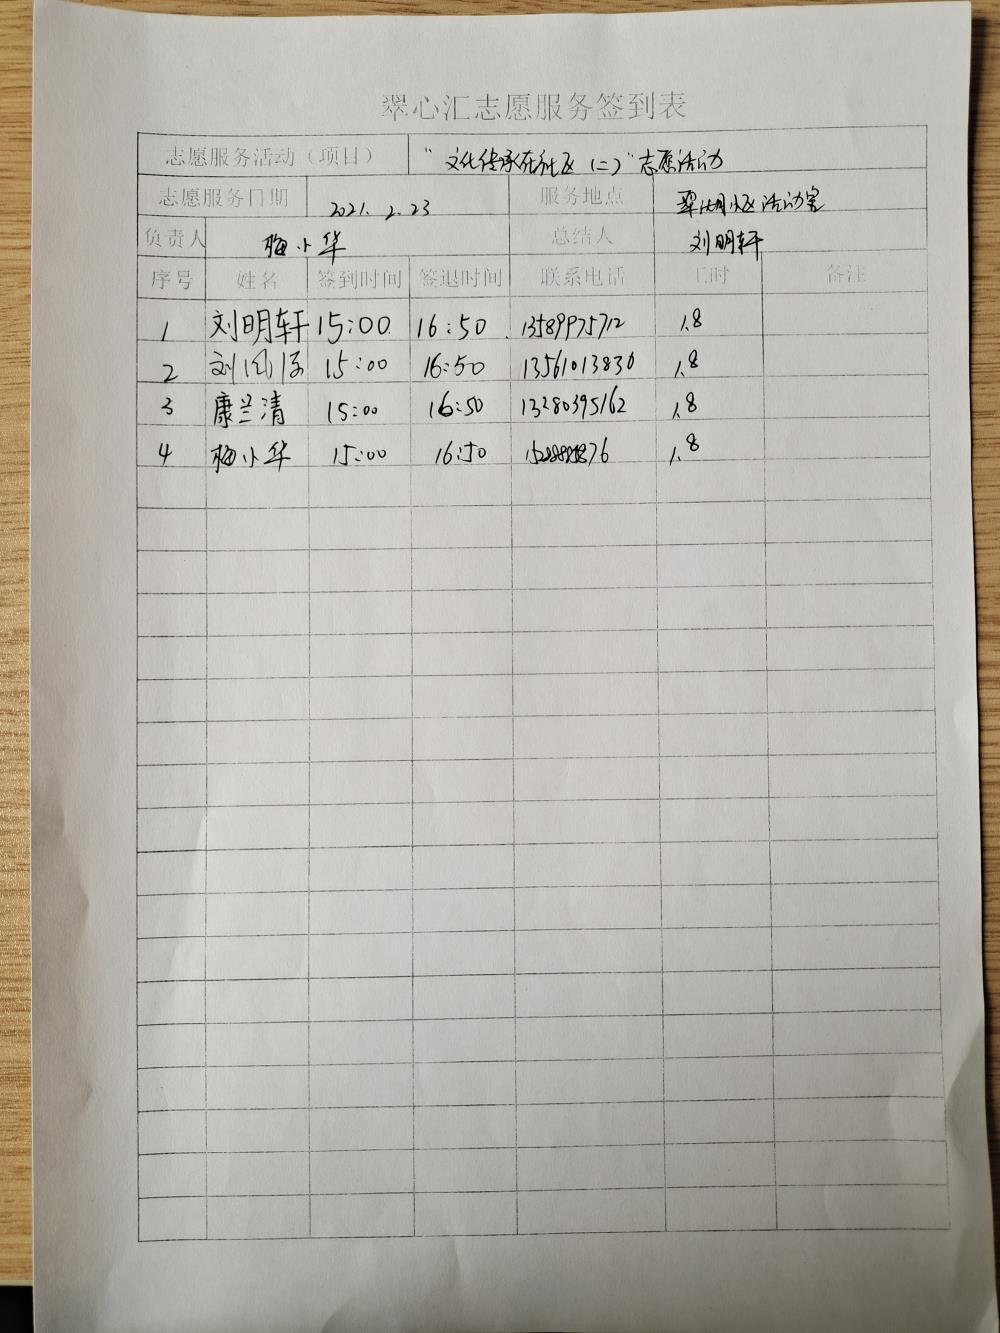 翠心汇志愿服务签到表
志愿服务活动（项目） “文化传承在社区（二）”志愿活动
志愿服务日期 2021.2.23 服务地点 翠湖小区活动室
负责人 梅小华 总结人 刘明轩
序号 姓名 签到时间 签退时间 联系电话 工时 备注
1 刘明轩 15:00 16:50 13589975712 1.8
2 刘 15:00 16:50 13561013830 1.8
3 康兰清 15:00 16:50 13280395162 1.8
4 梅小华 15:00 16:50 1.8